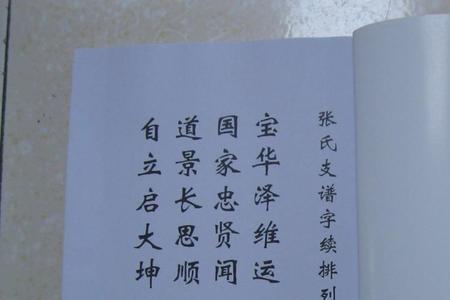 张氏支谱字续排列
宝华泽维运
国家忠贤闻
道景长思顺
自立启大坤